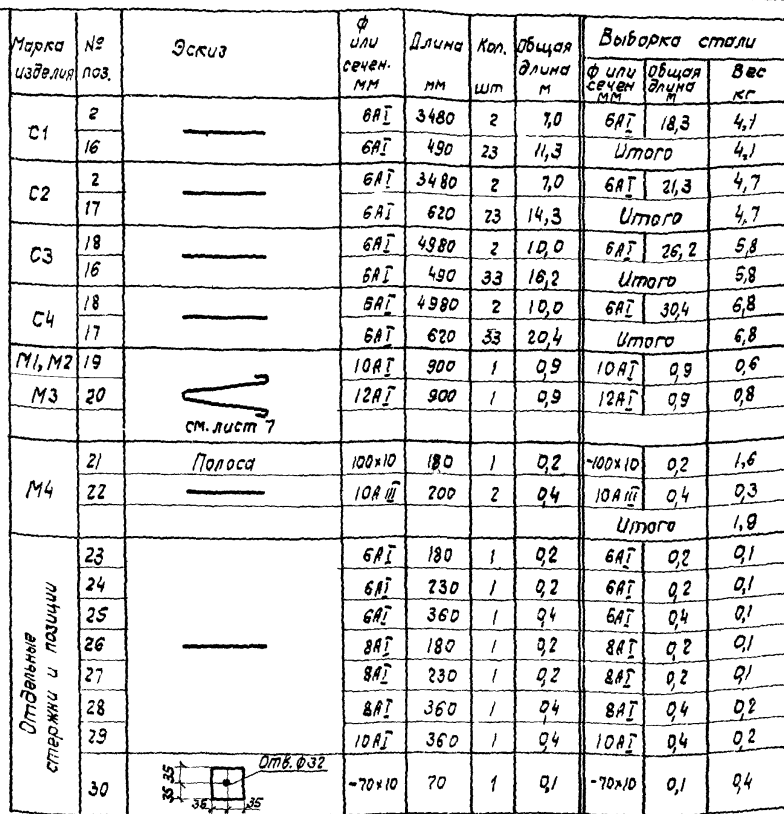 Марка изделия | № поз. | Эскиз | ϕ или сечен. мм | Длина мм | Кол. шт | Общая длина м | Выборка стали
ϕ или сечен мм | Общая длина м | Вес кг
С1 | 2 | 6АI | 3480 | 2 | 7,0 | 6АI | 18,3 | 4,1
16 | 6АI | 490 | 23 | 11,3 | Итого | 4,1
С2 | 2 | 6АI | 3480 | 2 | 7,0 | 6АI | 21,3 | 4,7
17 | 6АI | 620 | 23 | 14,3 | Итого | 4,7
С3 | 18 | 6АI | 4980 | 2 | 10,0 | 6АI | 26,2 | 5,8
16 | 6АI | 490 | 33 | 16,2 | Итого | 5,8
С4 | 18 | 6АI | 4980 | 2 | 10,0 | 6АI | 30,4 | 6,8
17 | 6АI | 620 | 33 | 20,4 | Итого | 6,8
М1, М2 | 19 | 10АI | 900 | 1 | 0,9 | 10АI | 0,9 | 0,6
М3 | 20 | 12АI | 900 | 1 | 0,9 | 12АI | 0,9 | 0,8
см. лист 7
М4 | 21 | Полоса | 100×10 | 180 | 1 | 0,2 | -100×10 | 0,2 | 1,6
22 | 10АIII | 200 | 2 | 0,4 | 10АIII | 0,4 | 0,3
Итого | 1,9
Отдельные стержни и позиции | 23 | 6АI | 180 | 1 | 0,2 | 6АI | 0,2 | 0,1
24 | 6АI | 230 | 1 | 0,2 | 6АI | 0,2 | 0,1
25 | 6АI | 360 | 1 | 0,4 | 6АI | 0,4 | 0,1
26 | 8АI | 180 | 1 | 0,2 | 8АI | 0,2 | 0,1
27 | 8АI | 230 | 1 | 0,2 | 8АI | 0,2 | 0,1
28 | 8АI | 360 | 1 | 0,4 | 8АI | 0,4 | 0,2
29 | 10АI | 360 | 1 | 0,4 | 10АI | 0,4 | 0,2
Отв. ϕ32
35 35
30 | -70×10 | 70 | 1 | 0,1 | -70×10 | 0,1 | 0,4
35 35